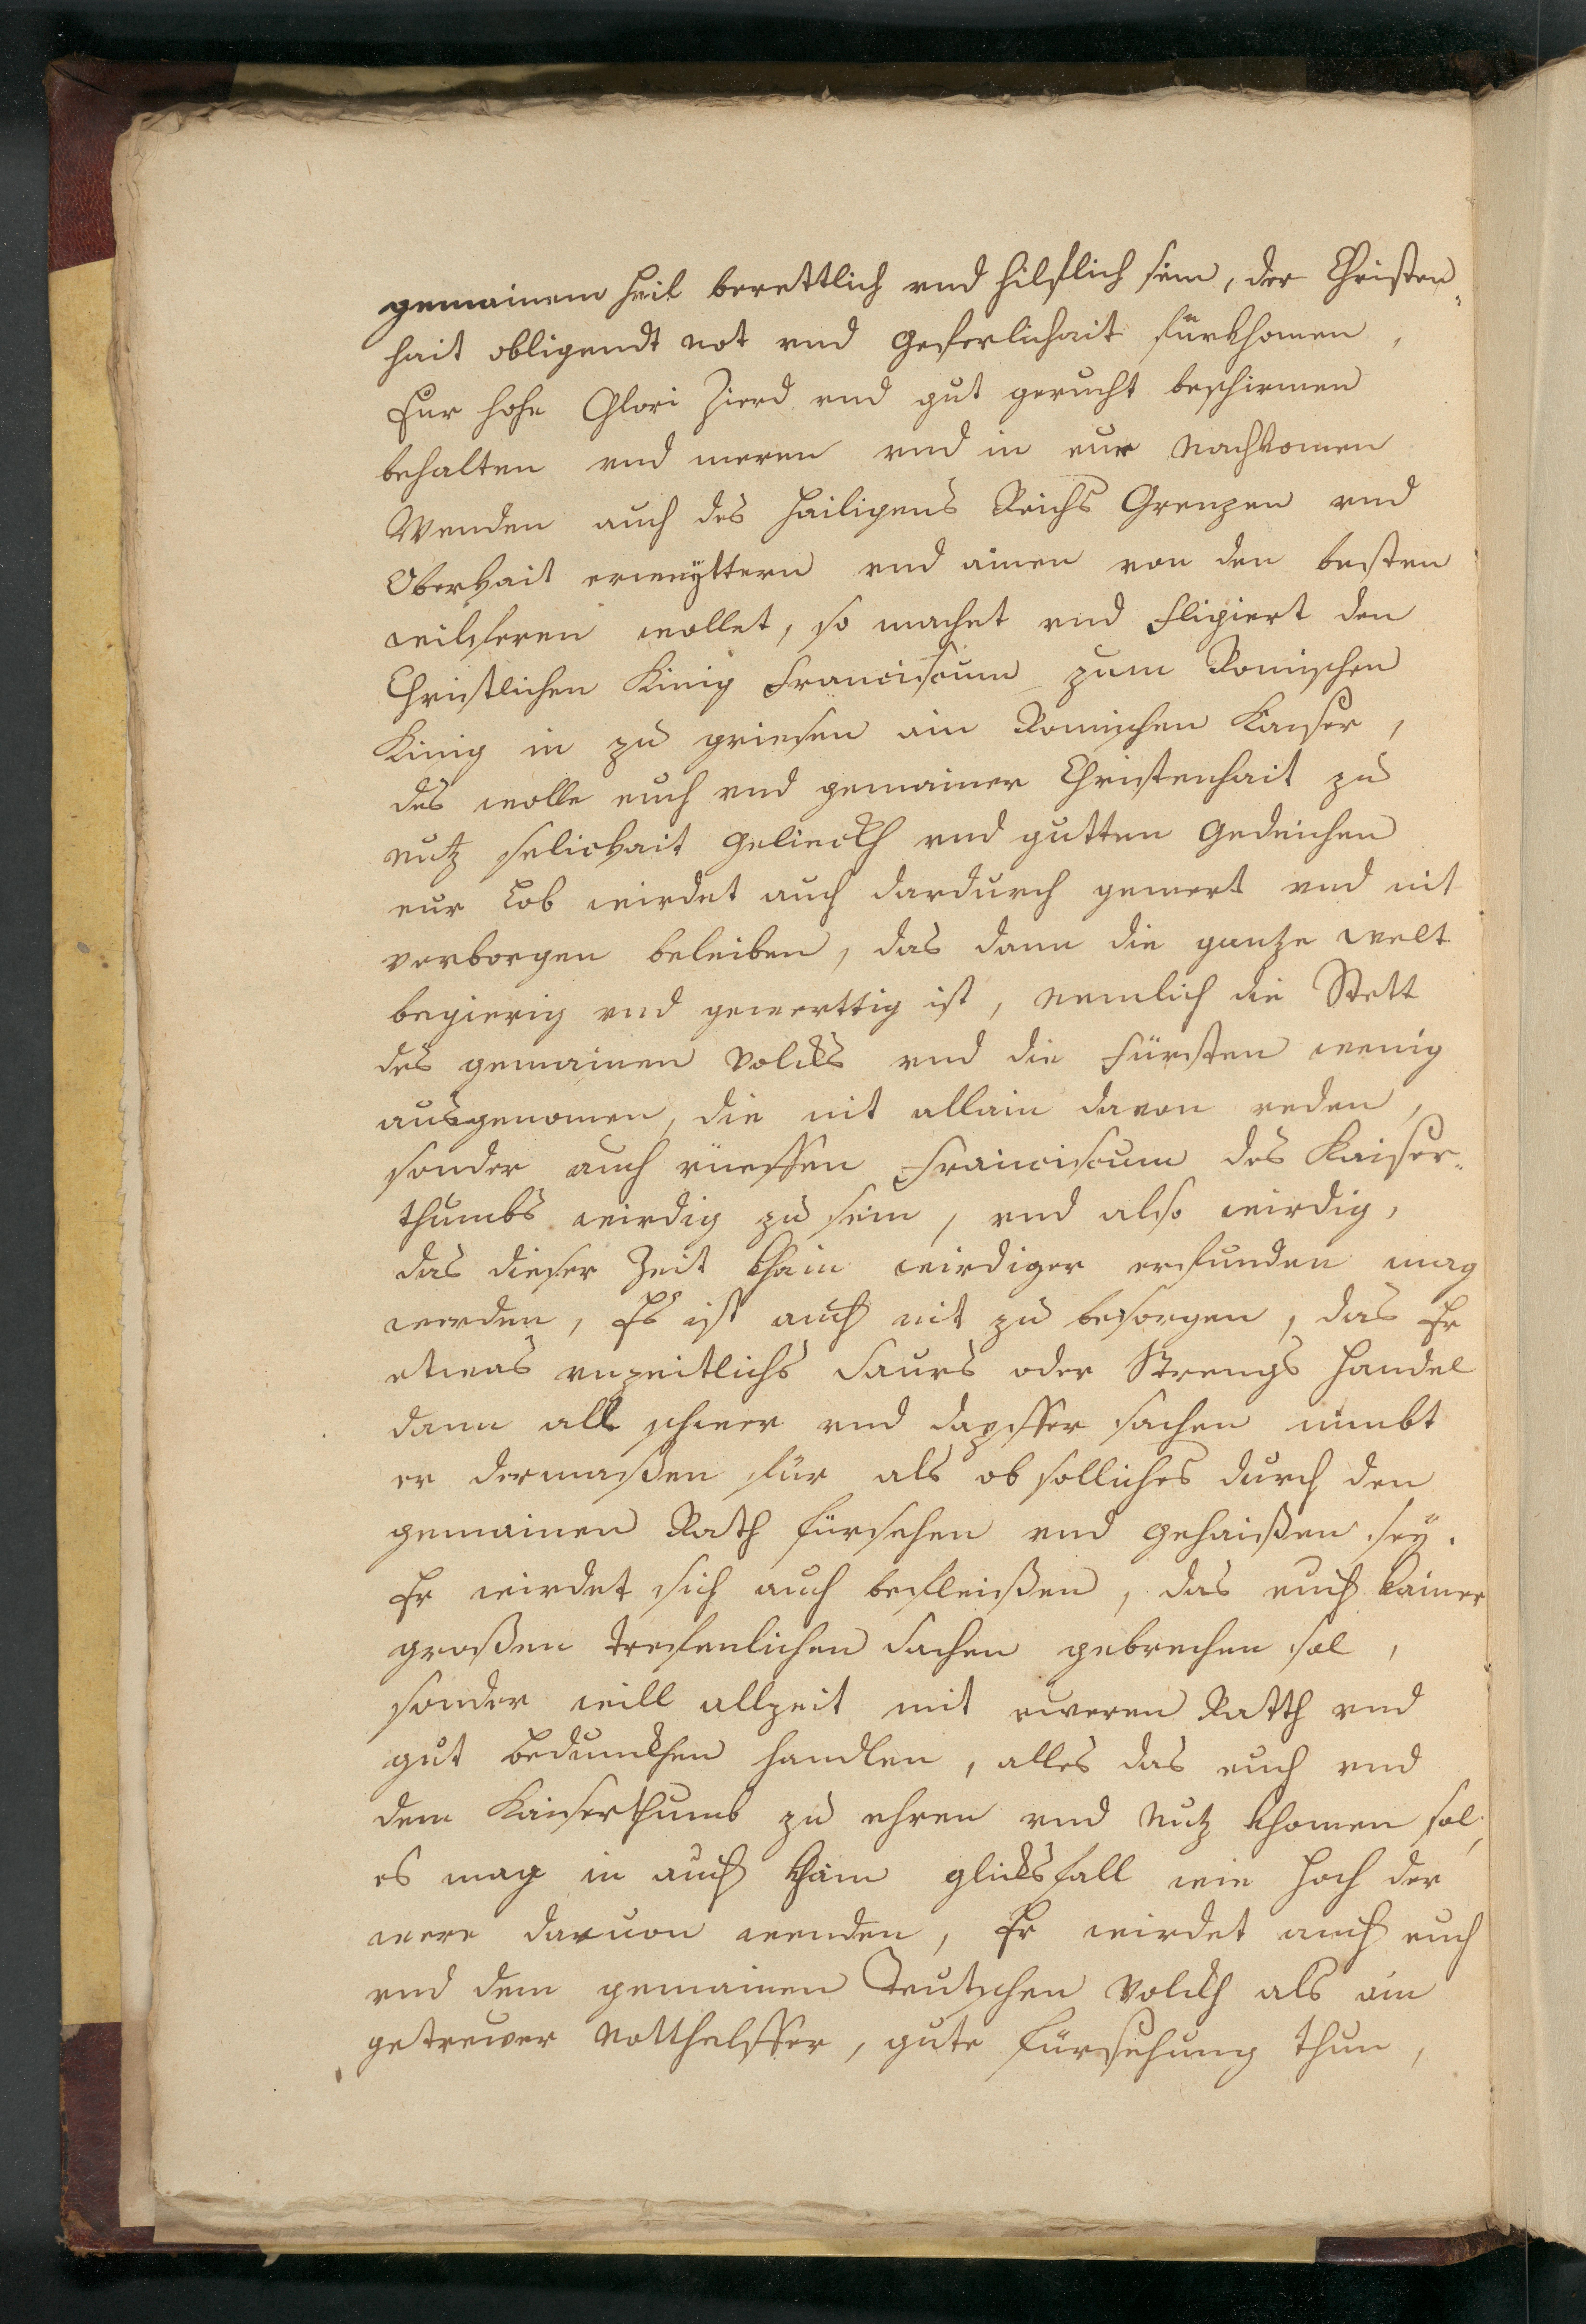 gemainem heil berettlich vnd hilflich sein, der Christen„
hait obligendt not vnd geferlichait fürkhomen,
Eur hohe Glori Zierd vnd gut gerucht beschirmen
behalten vnd meren vnd in eur nachkomen
Wenden auch des hailigens Reichs Grenzen vnd
Oberkait erweyttern vnd ainen von den besten
willferen wollet, so machet vnd Eligiert den
Christlichen Kinig Franciscum zum Romischen
Kinig in zu griesen ain Romischen Kaiser,
des wolle euch vnd gemainer Christenhait zu
nutz selickait gelieckh vnd gutten gedeichen
eur Lob wirdet auch dardurch gemert vnd nit
verborgen beleiben, das dann die gantze welt
begierig vnd gewerttig ist, nemlich die Stett
des gemainen volcks vnd die Fürsten wenig
ausgenomen, die nit allain davon reden,
sonder auch rüeffen Franciscum des Kaiser„
thumbs wirdig zu sein, vnd also wirdig,
das dieser Zeit khain wirdiger erfunden mag
werden, Es ist auch nit zu besorgen, das Er
etwas vnzeitlichs Saurs oder Strengs handel
dann all schwer vnd dapffer sachen nimbt
er dermaßen für als ob solliches durch den
gemainen Rath fürsehen vnd gehaißen sey.
Er wirdet sich auch befleißen, das euch kainer
großen treffenlichen Sachen gebrechen sol,
sonder will allzeit mit eweren Ratth vnd
gut bedunckhen handlen, alles das euch vnd
dem Kaiserthumb zu ehren vnd nutz khomen sol,
es mag in auch khain glicksfall wie hoch der
were daruon wenden, Er wirdet auch euch
vnd dem gemainen Teutschen volckh als ain
getrewer notthelffer, gute Fürsehung thun,